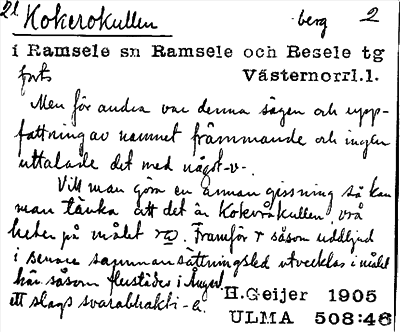 21 Kokerokullen berg 2
i Ramsele sn Ramsele och Resele tg
forts Västernorrl.l.
Men för andra var denna sägen och upp-
fattning av namnet främmande och ingen
uttalade det med något -v-.
Vill man göra en annan gissning så kan
man tänka att det är Kokvråkullen, vrå
heter på målet Framför r såsom uddljud
i senare sammansättningsled utvecklas i målet
här såsom flerstädes i Ångerl.
ett slags svarabhakti-e.
H.Geijer 1905
ULMA 508:46